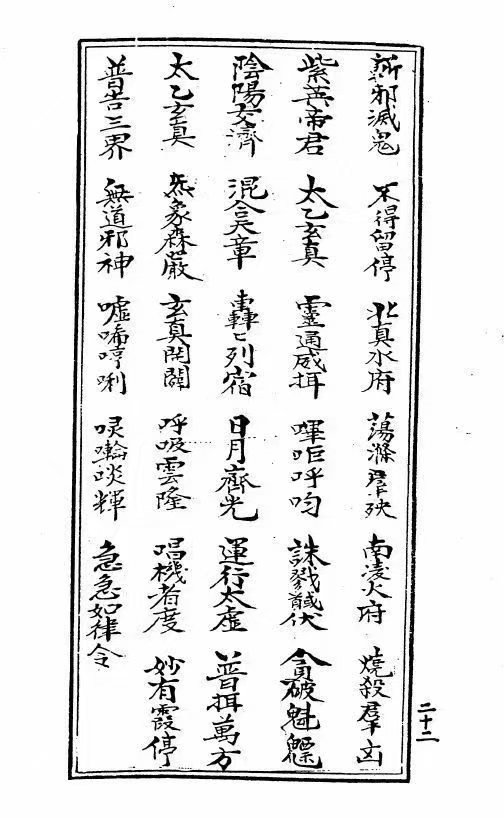 斬邪滅鬼 不得留停 北真水府 蕩滌羣殃 南凌火府 燒殺羣凶
紫英帝君 太乙玄真 靈通威揖 喗㕵呼呁 誅戮馘伏 貪破魁魒
陰陽交濟 混合天章 轟轟列宿 日月齊光 運行太虛 普揖萬方
太乙玄真 炁象森嚴 玄真開闢 呼吸雲隆 唱機者度 妙有霞停
普告三界 無道邪神 噓唏哼唎 輝 急急如律令
二十二